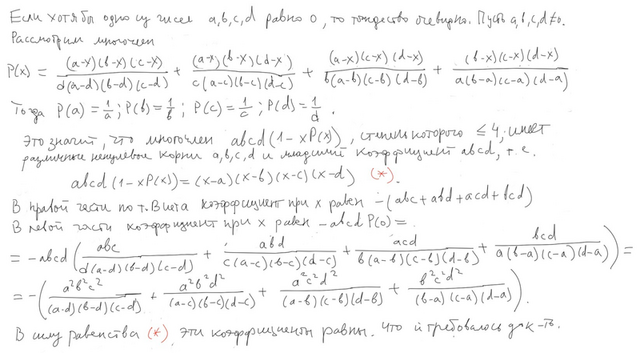 Если хотя бы одно из чисел a,b,c,d равно 0, то тождество очевидно. Пусть a,b,c,d≠0.
Рассмотрим многочлен
P(x) = (a-x)(b-x)(c-x)/d(a-d)(b-d)(c-d) + (a-x)(b-x)(d-x)/c(a-c)(b-c)(d-c) + (a-x)(c-x)(d-x)/b(a-b)(c-b)(d-b) + (b-x)(c-x)(d-x)/a(b-a)(c-a)(d-a)
Тогда P(a)=1/a; P(b)=1/b; P(c)=1/c; P(d)=1/d.
Это значит, что многочлен abcd(1-xP(x)), степень которого ≤ 4, имеет
различные ненулевые корни a,b,c,d и младший коэффициент abcd, т.е.
abcd(1-xP(x))=(x-a)(x-b)(x-c)(x-d) (*).
В правой части по т. Виета коэффициент при x равен -(abc+abd+acd+bcd)
В левой части коэффициент при x равен -abcd P(0)=
= -abcd(abc/d(a-d)(b-d)(c-d) + abd/c(a-c)(b-c)(d-c) + acd/b(a-b)(c-b)(d-b) + bcd/a(b-a)(c-a)(d-a))=
= -(a²b²c²/(a-d)(b-d)(c-d) + a²b²d²/(a-c)(b-c)(d-c) + a²c²d²/(a-b)(c-b)(d-b) + b²c²d²/(b-a)(c-a)(d-a)).
В силу равенства (*) эти коэффициенты равны. Что и требовалось док-ть.